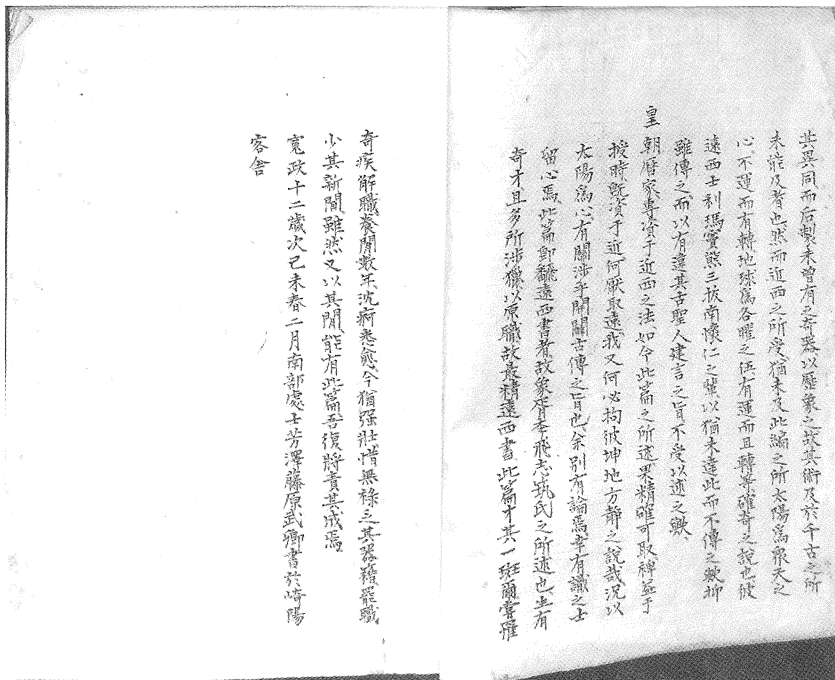 其異同而后製未曾有之奇器以歷象之故其術及於千古之所
未能及者也然而近西之所受猶未及此編之所太陽為衆天之
心不運而有轉地球為各曜之伍有運而且轉等確奇之說也彼
遠西士利瑪竇熊三拔南懷仁之輩以猶未達此而不傳之歟抑
雖傳之而以有違其古聖人建言之旨不受以述之歟
皇
朝曆家專資于近西之法如令此篇之所述果精確可取裨益于
授時既資于近何厭取遠我又何必拘彼坤地方靜之說哉況以
太陽為心有關涉乎開闢古傳之旨也余別有論焉幸有識之士
留心焉此篇即飜遠西書者故象胥李飛志筑氏之所述也生有
奇才且多所涉獵以原職故最精遠西書此篇才其一斑爾嘗罹
奇疾解職養閒數年沈痾悉愈今猶强壯惜無祿之其器籍罷職
少其新聞雖然又以其閒能有此篇吾復將責其成焉
寬政十二歲次己未春二月南部處士芳澤藤原武卿書於崎陽
客舍